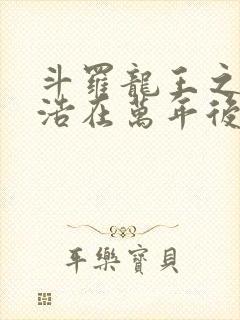 斗羅龍王之
浩在萬年後
平樂寶貝